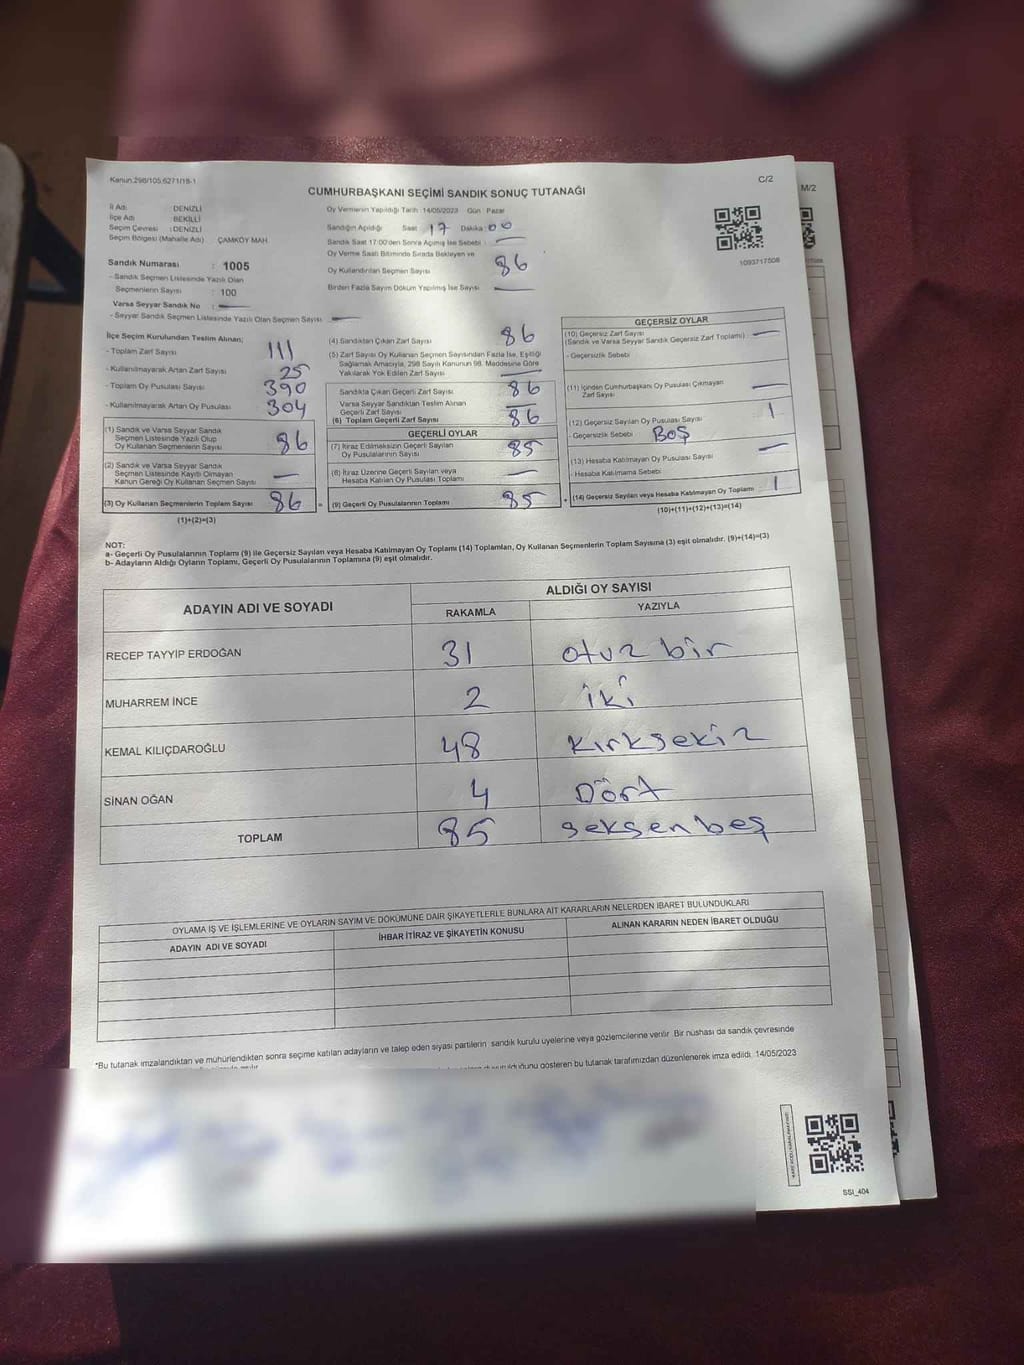 Kanun.298/105,6271/18-1
C/2
M/2
CUMHURBAŞKANI SEÇİMİ SANDIK SONUÇ TUTANAĞI
İl Adı : DENİZLİ
İlçe Adı : BEKİLLİ
Seçim Çevresi : DENİZLİ
Seçim Bölgesi (Mahalle Adı) : ÇAMKÖY MAH.
Sandık Numarası : 1005
- Sandık Seçmen Listesinde Yazılı Olan
Seçmenlerin Sayısı : 100
Varsa Seyyar Sandık No : —
- Seyyar Sandık Seçmen Listesinde Yazılı Olan Seçmen Sayısı : —
Oy Vermenin Yapıldığı Tarih :14/05/2023 Gün : Pazar
Sandığın Açıldığı Saat : 17 Dakika : 00
Sandık Saat 17:00'den Sonra Açılmış İse Sebebi : —
Oy Verme Saati Bitiminde Sırada Bekleyen ve
Oy Kullandırılan Seçmen Sayısı 86
Birden Fazla Sayım Döküm Yapılmış İse Sayısı —
1093717508
İlçe Seçim Kurulundan Teslim Alınan;
- Toplam Zarf Sayısı 111
- Kullanılmayarak Artan Zarf Sayısı 25
- Toplam Oy Pusulası Sayısı 390
- Kullanılmayarak Artan Oy Pusulası 304
(1) Sandık ve Varsa Seyyar Sandık
Seçmen Listesinde Yazılı Olup
Oy Kullanan Seçmenlerin Sayısı 86
(2) Sandık ve Varsa Seyyar Sandık
Seçmen Listesinde Kayıtlı Olmayan
Kanun Gereği Oy Kullanan Seçmen Sayısı —
(3) Oy Kullanan Seçmenlerin Toplam Sayısı 86
(1)+(2)=(3)
(4) Sandıktan Çıkan Zarf Sayısı 86
(5) Zarf Sayısı Oy Kullanan Seçmen Sayısından Fazla İse, Eşitliği
Sağlamak Amacıyla, 298 Sayılı Kanunun 98. Maddesine Göre
Yakılarak Yok Edilen Zarf Sayısı —
Sandıkta Çıkan Geçerli Zarf Sayısı 86
Varsa Seyyar Sandıktan Teslim Alınan
Geçerli Zarf Sayısı —
(6) Toplam Geçerli Zarf Sayısı 86
GEÇERLİ OYLAR
(7) İtiraz Edilmeksizin Geçerli Sayılan
Oy Pusulalarının Sayısı 85
(8) İtiraz Üzerine Geçerli Sayılan veya
Hesaba Katılan Oy Pusulaları Toplamı —
= (9) Geçerli Oy Pusulalarının Toplamı 85
GEÇERSİZ OYLAR
(10) Geçersiz Zarf Sayısı —
(Sandık ve Varsa Seyyar Sandık Geçersiz Zarf Toplamı)
- Geçersizlik Sebebi
(11) İçinden Cumhurbaşkanı Oy Pusulası Çıkmayan
Zarf Sayısı —
(12) Geçersiz Sayılan Oy Pusulası Sayısı 1
- Geçersizlik Sebebi BOŞ
(13) Hesaba Katılmayan Oy Pusulası Sayısı —
- Hesaba Katılmama Sebebi
+ (14) Geçersiz Sayılan veya Hesaba Katılmayan Oy Toplamı 1
(10)+(11)+(12)+(13)=(14)
NOT:
a- Geçerli Oy Pusulalarının Toplamı (9) ile Geçersiz Sayılan veya Hesaba Katılmayan Oy Toplamı (14) Toplamları, Oy Kullanan Seçmenlerin Toplam Sayısına (3) eşit olmalıdır. (9)+(14)=(3)
b- Adayların Aldığı Oyların Toplamı, Geçerli Oy Pusulalarının Toplamına (9) eşit olmalıdır.
ADAYIN ADI VE SOYADI ALDIĞI OY SAYISI
RAKAMLA YAZIYLA
RECEP TAYYİP ERDOĞAN 31 otuz bir
MUHARREM İNCE 2 iki
KEMAL KILIÇDAROĞLU 48 Kırksekiz
SİNAN OĞAN 4 Dört
TOPLAM 85 seksenbeş
OYLAMA İŞ VE İŞLEMLERİNE VE OYLARIN SAYIM VE DÖKÜMÜNE DAİR ŞİKAYETLERLE BUNLARA AİT KARARLARIN NELERDEN İBARET BULUNDUKLARI
ADAYIN ADI VE SOYADI İHBAR İTİRAZ VE ŞİKAYETİN KONUSU ALINAN KARARIN NEDEN İBARET OLDUĞU
*Bu tutanak imzalandıktan ve mühürlendikten sonra seçime katılan adayların ve talep eden siyasi partilerin sandık kurulu üyelerine veya gözlemcilerine verilir. Bir nüshası da sandık çevresinde
gösteren bu tutanak tarafımızdan düzenlenerek imza edildi. 14/05/2023
SSI_404